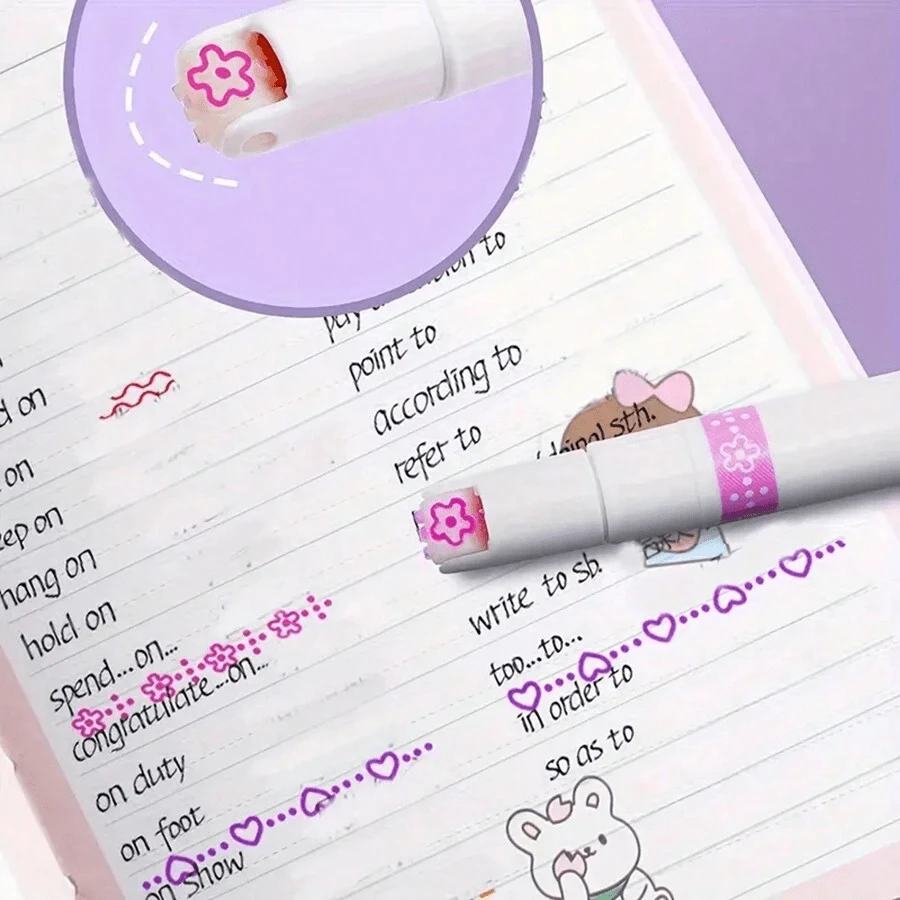 on
on
hang on
hold on
spend...on...
congratulate...on...
on duty
on foot
on show
to
point to
according to
refer to
sth.
write to sb.
too...to...
in order to
so as to